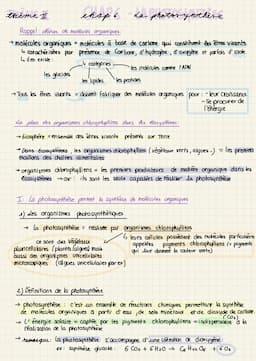 thème II chap 6 La photosynthèse
Rappel : définir de molécules organiques
→ molécules organiques = molécules à base de carbone qui constituent les êtres vivants
↳ caractérisées par présence de carbone, d'hydrogène, d'oxygène et parfois d'azote.
↳ il en existe :
4 catégories
les glucides
les lipides
les protéines
les molécules comme l'ADN
→ Tous les êtres vivants = doivent fabriquer des molécules organiques pour : - leur croissance
- se procurer de l'énergie
La place des organismes chlorophylliens dans des écosystèmes :
→ biosphère = ensemble des êtres vivants présents sur Terre
→ Dans écosystèmes, les organismes chlorophylliens (végétaux verts, algues..) = les premiers
maillons des chaînes alimentaires
→ organismes chlorophylliens = les premiers producteurs de matière organique dans les
écosystèmes → car ils sont les seuls capables de réaliser la photosynthèse
I. La photosynthèse permet la synthèse de molécules organiques
1) Les organismes photosynthétiques
→ La photosynthèse = réalisée par organismes chlorophylliens
ce sont des végétaux
pluricellulaires (plantes, algues) mais
aussi des organismes unicellulaires
microscopiques (algues unicellulaires)
↳ leurs cellules possèdent des molécules particulières
appelées pigments chlorophylliens (= pigments
qui leur donnent la couleur verte)
2) Définition de la photosynthèse
→ photosynthèse : c'est un ensemble de réactions chimiques permettant la synthèse
de molécules organiques à partir d'eau, de sels minéraux et de dioxyde de carbone
(CO₂)
→ L'énergie solaire = captée par les pigments chlorophylliens = indispensable à la
réalisation de la photosynthèse
→ remarque : la photosynthèse s'accompagne d'une libération de dioxygène
ex : synthèse glucose : 6 CO₂ + 6 H₂O → C₆H₁₂O₆ + 6 O₂